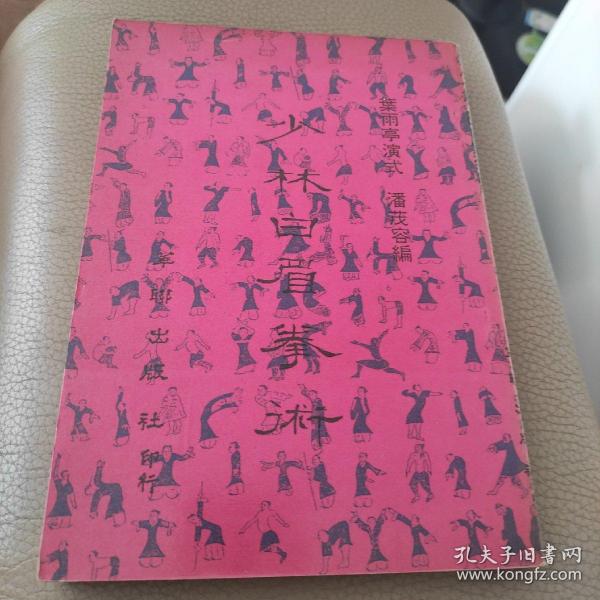 葉雨亭演式 潘茂容編
少林白眉拳術
聯出版社印行
孔夫子旧书网
www.kongfz.com